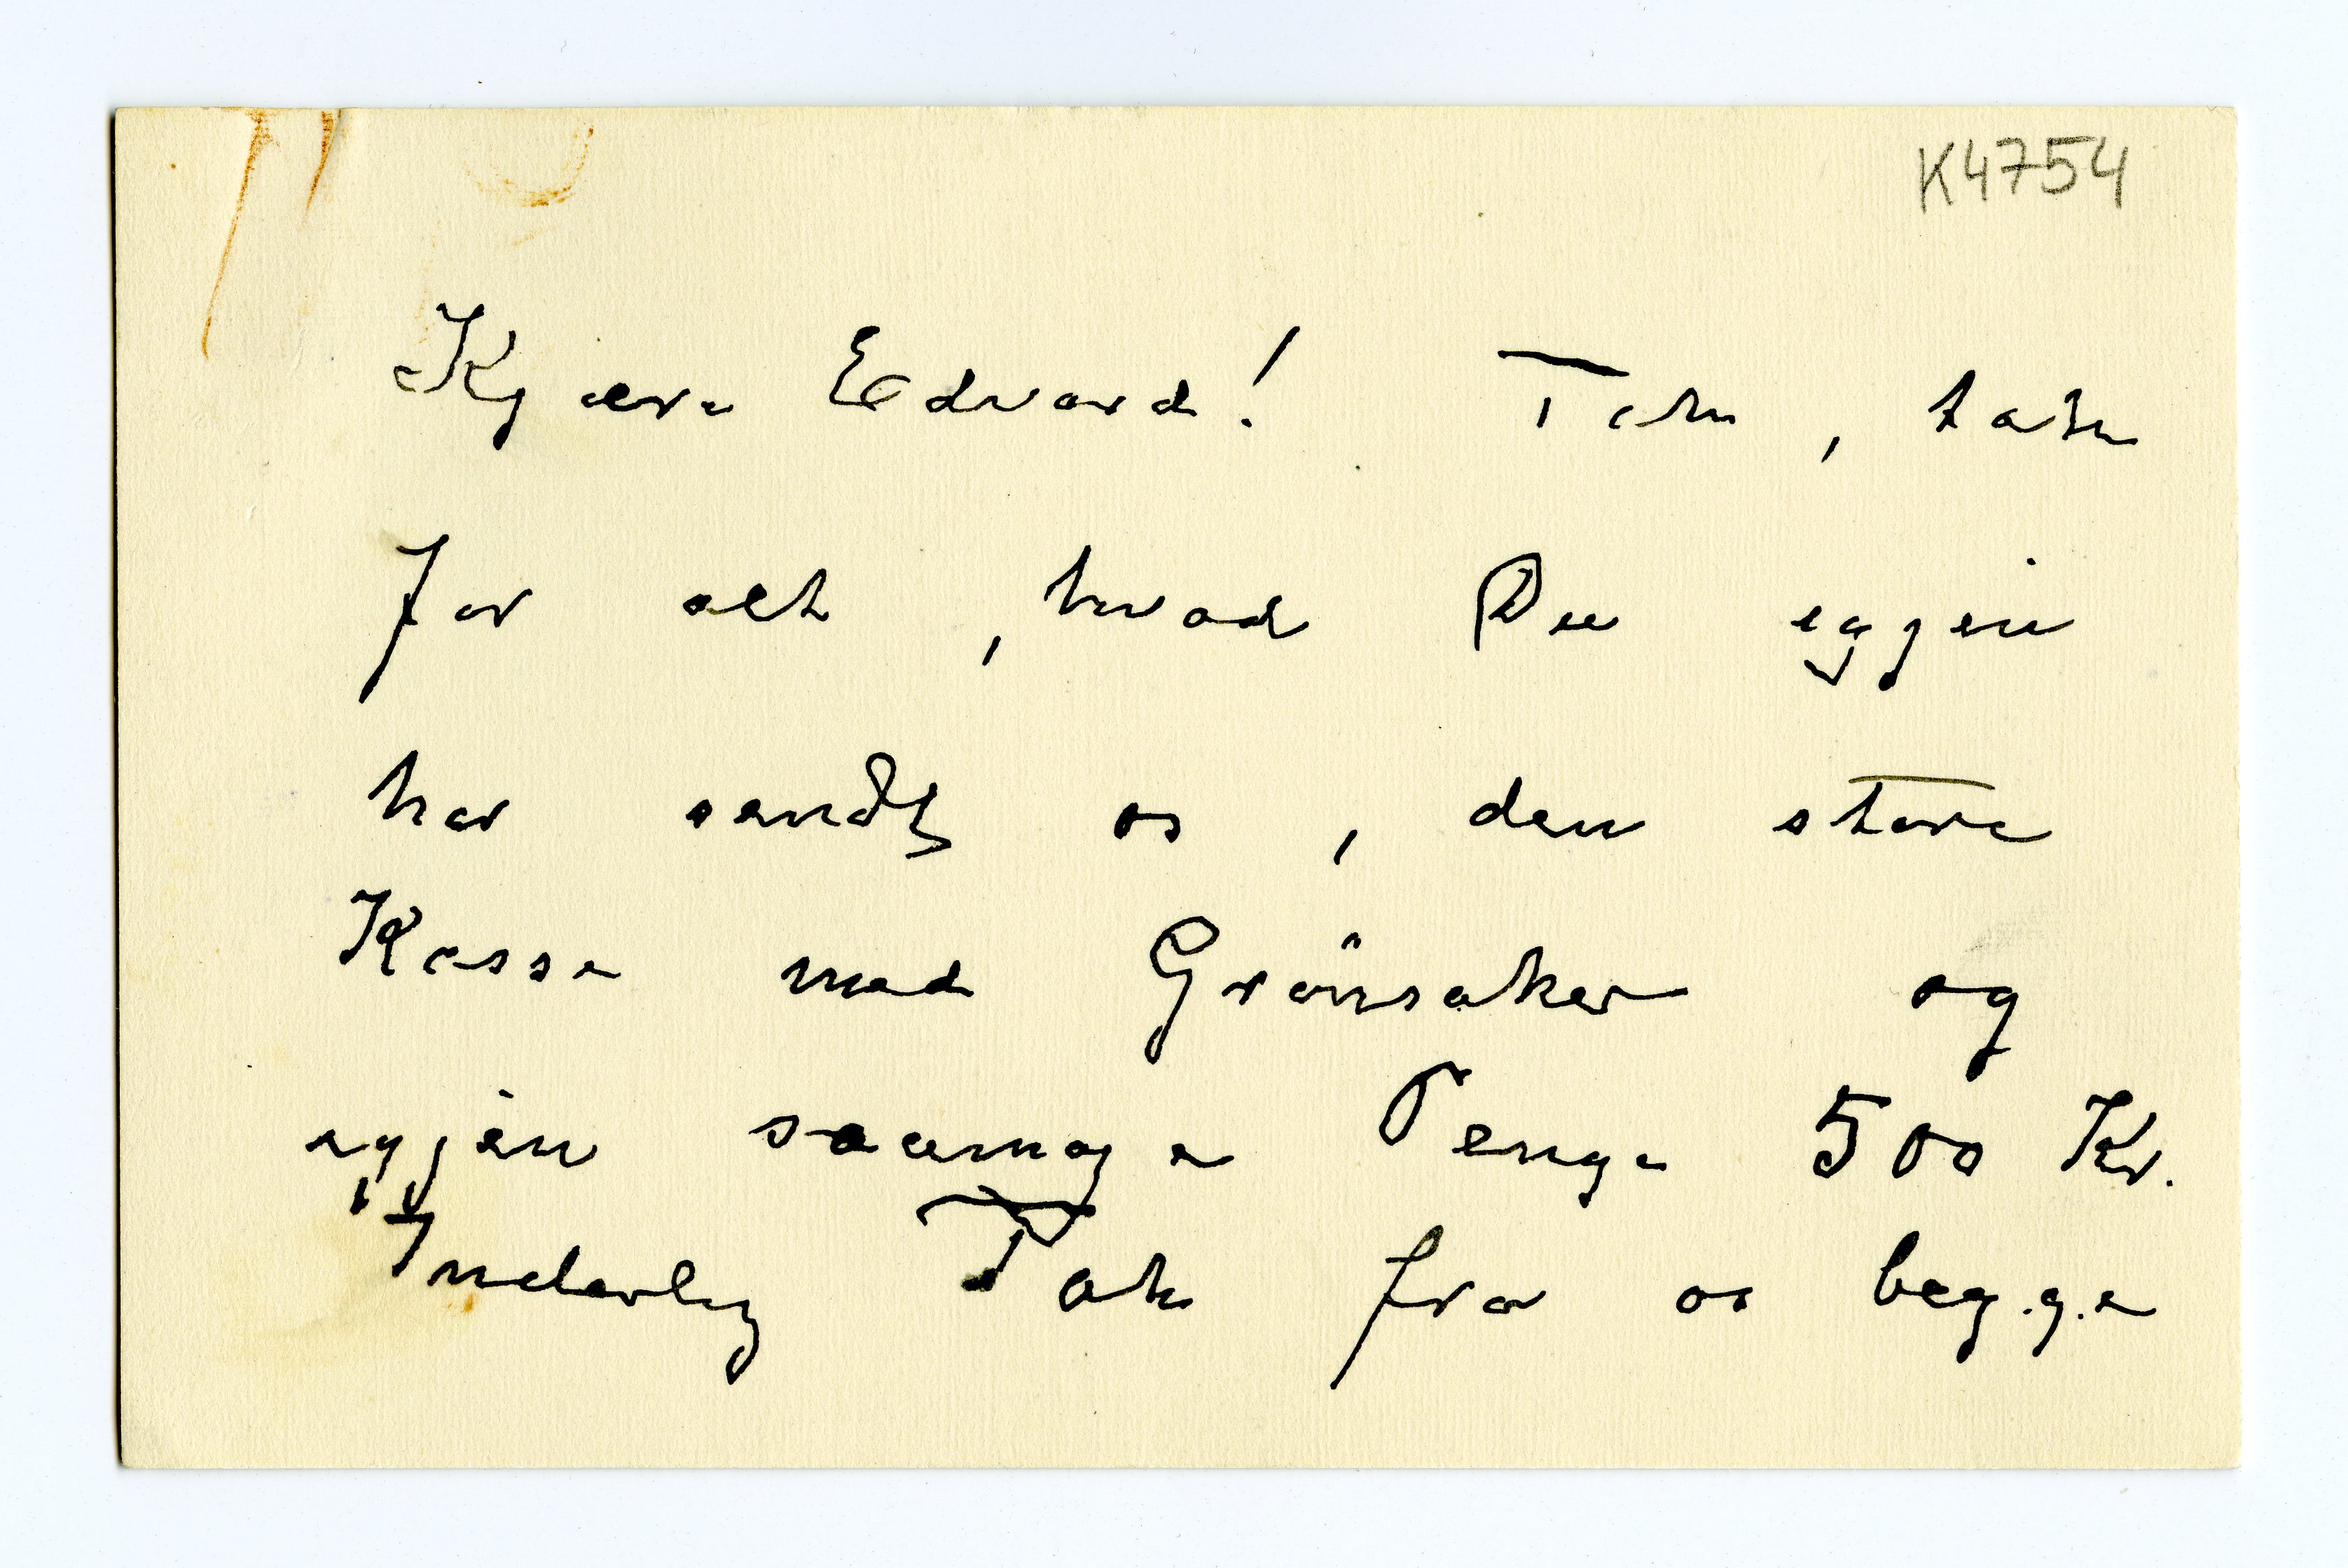 K4754
Kjære Edvard! Tak, tak
for alt, hvad Du iggjen
har sendt os, den store
Kasse med Grönsaker og
iggjen saamange Penge 500 Kr.
Inderlig Tak fra os begge